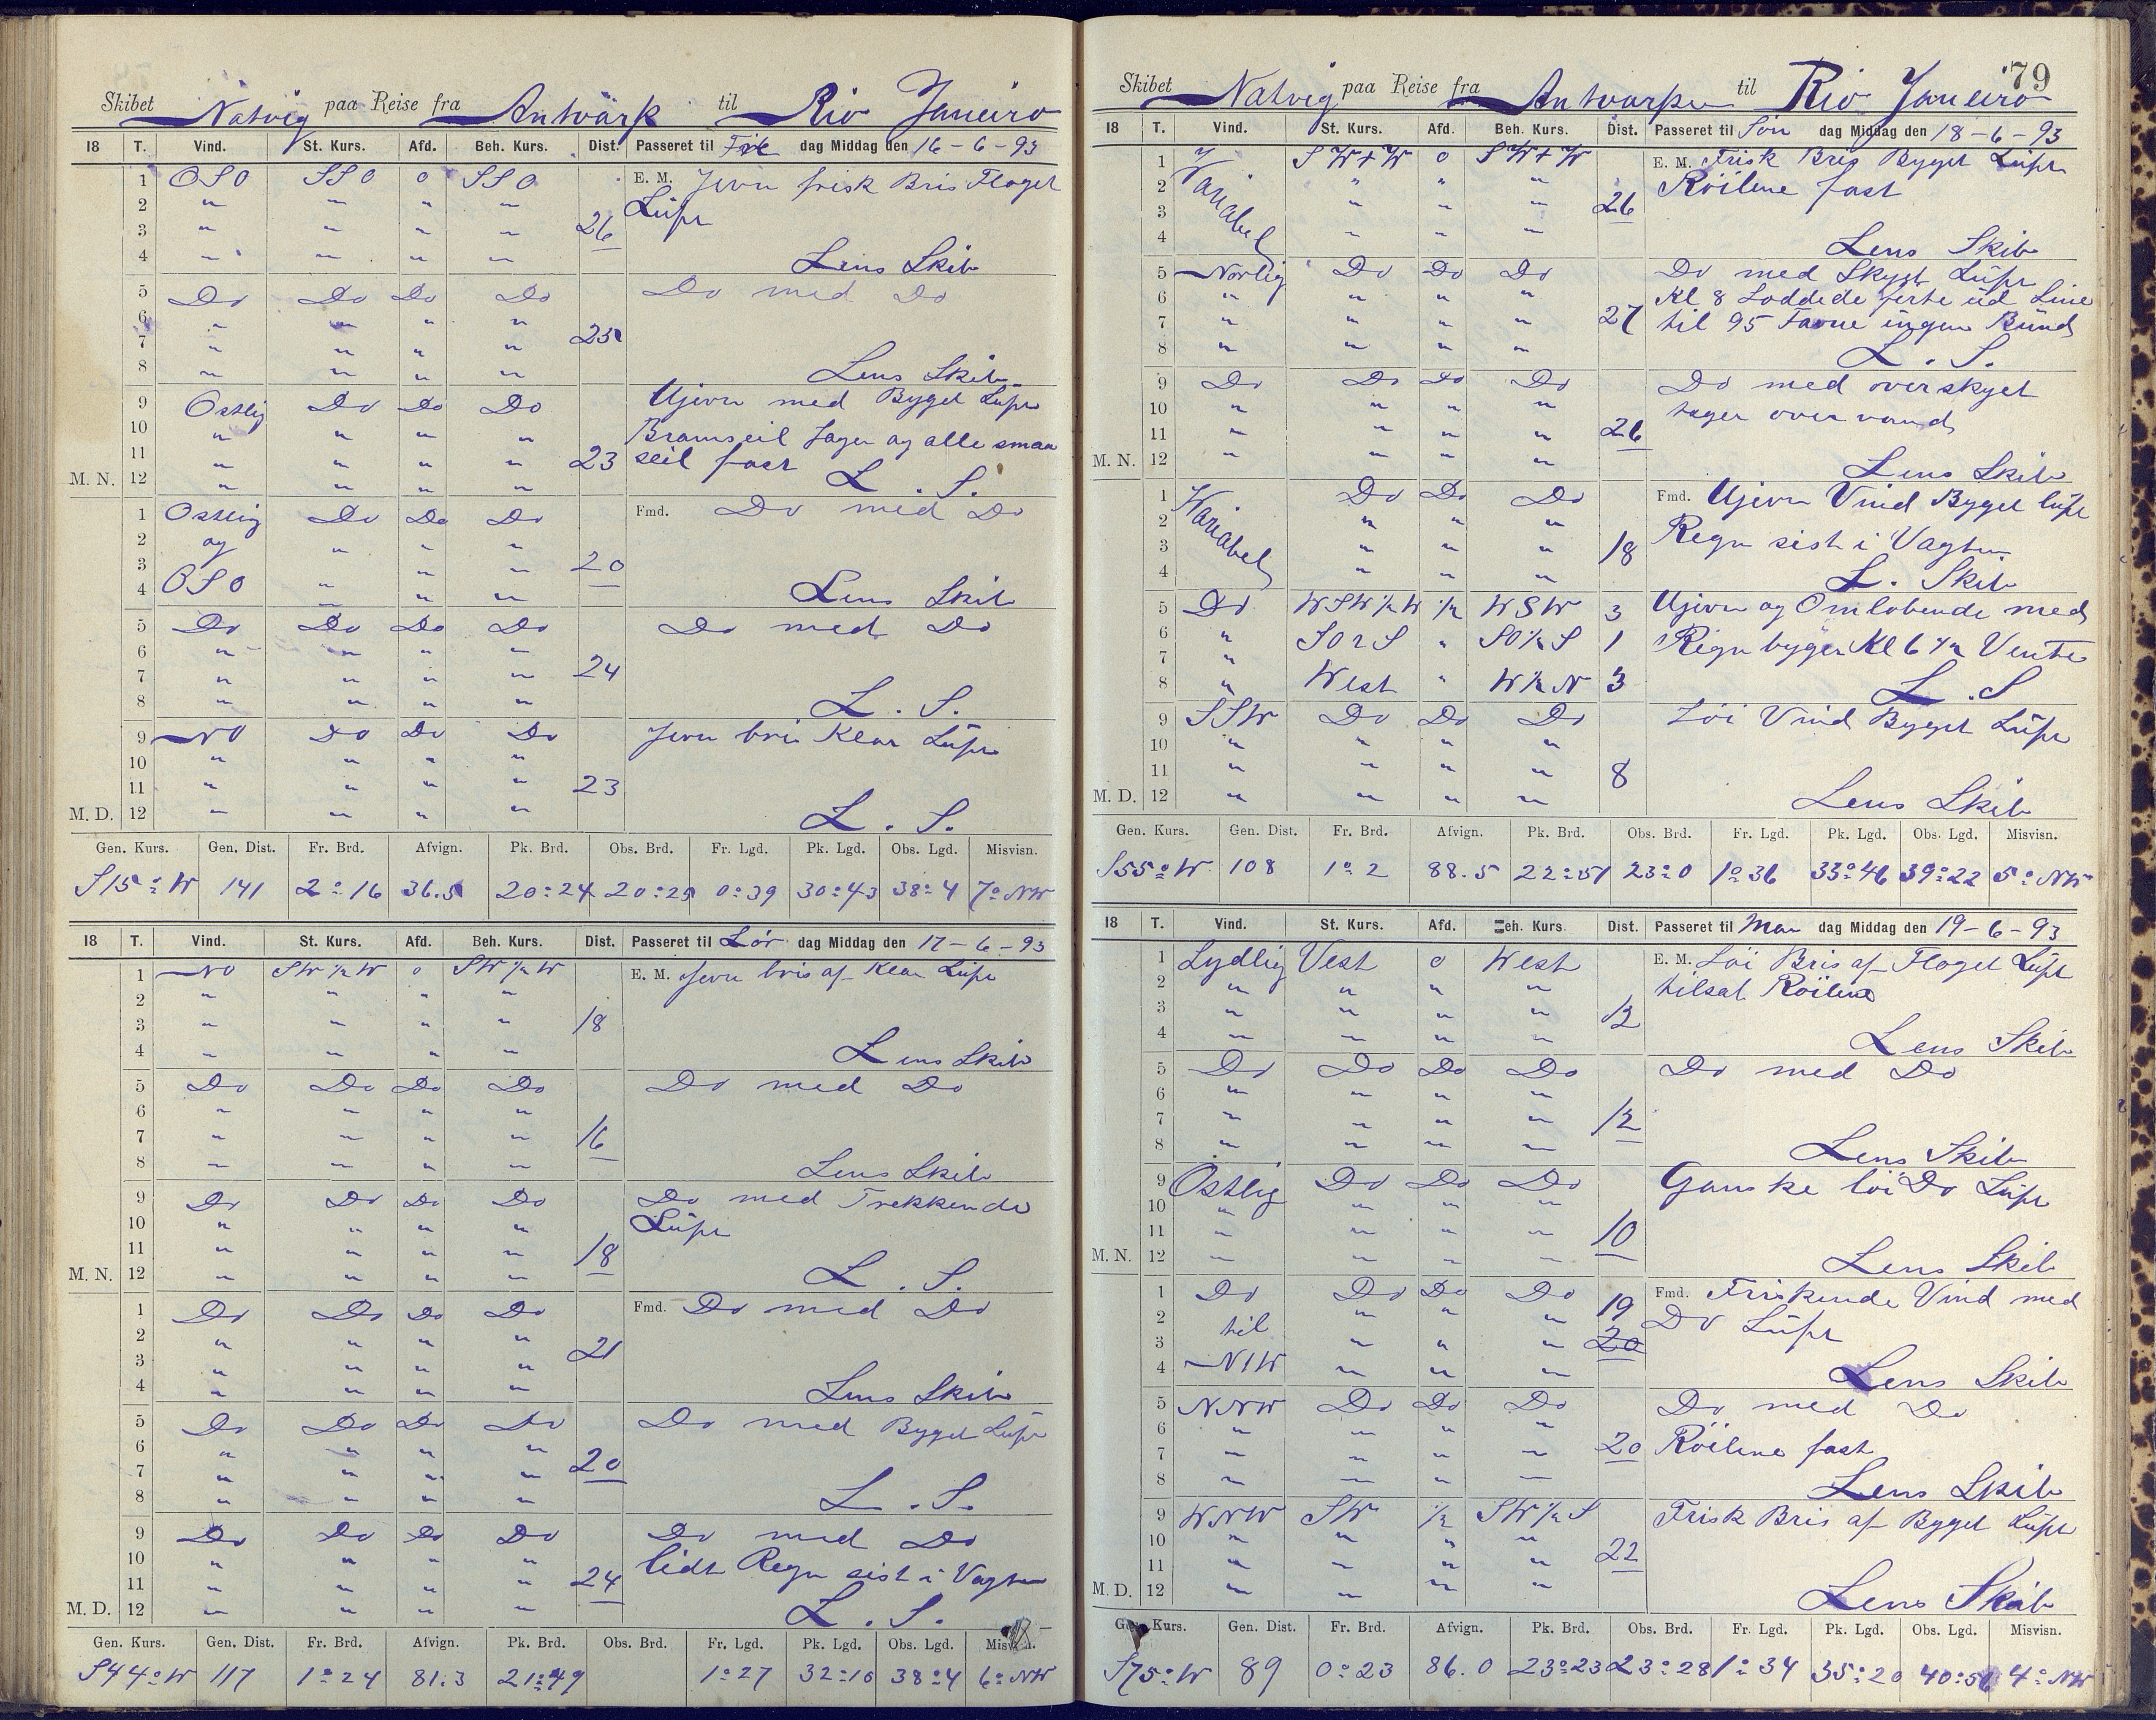 Skibet Natvig paa Reise fra Antwärp til Rio Janeiro
18 T. Vind. St. Kurs. Afd. Beh. Kurs. Dist. Passeret til Fre dag Middag den 16-6-93
1 OSO SSO o SSO E. M. Jevn frisk Bris Floget
2 " " " " Lüft
3 " " " " 26
4 " " " " Lens Skib
5 Do Do Do Do Do med Do
6 " " " "
7 " " " " 25
8 " " " " Lens Skib
9 Ostlig Do Do Do Ujevn med Byget Lüft
10 " " " " Bramseil Jager og alle smaa
11 " " " " 23 seil fast
M. N. 12 " " " " L. S.
1 Ostlig Do Do Do Fmd. Do med Do
2 og " " "
3 " " " 20
4 OSO " " " Lens Skib
5 Do Do Do Do Do med Do
6 " " " "
7 " " " " 24
8 " " " " L. S.
9 NO Do Do Do Jevn bris Klar Lüft
10 " " " "
11 " " " " 23
M. D. 12 " " " " L. S.
Gen. Kurs. Gen. Dist. Fr. Brd. Afvign. Pk. Brd. Obs. Brd. Fr. Lgd. Pk. Lgd. Obs. Lgd. Misvisn.
S15°W 141 2°16 36.5 20°24 20°25 0°39 30°43 38°4 7°NW
18 T. Vind. St. Kurs. Afd. Beh. Kurs. Dist. Passeret til Lör dag Middag den 17-6-93
1 NO SW½W o SW½W E. M. Jevn bris af Klar Lüft
2 " " " "
3 " " " " 18
4 " " " " Lens Skib
5 Do Do Do Do Do med Do
6 " " " "
7 " " " " 16
8 " " " " Lens Skib
9 Do Do Do Do Do med Trekkende
10 " " " " Lüft
11 " " " " 18
M. N. 12 " " " " L. S.
1 Do Do Do Do Fmd. Do med Do
2 " " " "
3 " " " " 21
4 " " " " Lens Skib
5 Do Do Do Do Do med Byget Lüft
6 " " " "
7 " " " " 20
8 " " " " L. S.
9 Do Do Do Do Do med Do
10 " " " " lidt Regn sist i Vagten
11 " " " " 24
M. D. 12 " " " " L. S.
Gen. Kurs. Gen. Dist. Fr. Brd. Afvign. Pk. Brd. Obs. Brd. Fr. Lgd. Pk. Lgd. Obs. Lgd. Misvisn.
S44°W 117 1°24 81.3 21°49 1°27 32°10 38°4 6°NW
79
Skibet Natvig paa Reise fra Antwarpen til Rio Janeiro
18 T. Vind. St. Kurs. Afd. Beh. Kurs. Dist. Passeret til Sön dag Middag den 18-6-93
1 Variabel SW+W o SW+W E. M. Frisk Bris Byget Lüft
2 " " " Röilene fast
3 " " " 26
4 " " " Lens Skib
5 Norlig Do Do Do Do med Skyet Lüft
6 " " " " Kl 8 Loddede ferte üd Line
7 " " " " 27 til 95 Favne ingen Bünd
8 " " " " L. S.
9 Do Do Do Do Do med overskyet
10 " " " " tager over vand
11 " " " " 26
M. N. 12 " " " " Lens Skib
1 Variabel Do Do Do Fmd. Ujevn Vind Byget lüft
2 " " " Regn sist i Vagten
3 " " " 18
4 " " " L. Skib
5 Do WSW½W ½ WSW 3 Ujevn og Omlobende med
6 " SOzS " SO½S 1 Regn byger Kl 6½ Vente
7 "
8 " West " W½N 3 L. S
9 SSW Do Do Do Löi Vind Byget Lüft
10 " " " "
11 " " " " 8
M. D. 12 " " " " Lens Skib
Gen. Kurs. Gen. Dist. Fr. Brd. Afvign. Pk. Brd. Obs. Brd. Fr. Lgd. Pk. Lgd. Obs. Lgd. Misvisn.
S55°W 108 1°2 88.5 22°51 23°0 1°36 33°46 39°22 5°NW
18 T. Vind. St. Kurs. Afd. Beh. Kurs. Dist. Passeret til Man dag Middag den 19-6-93
1 Sydlig Vest o West E. M. Löi Bris af Floget Lüft
2 " " " " tilsat Röilene
3 " " " " 12
4 " " " " Lens Skib
5 Do Do Do Do Do med Do
6 " " " "
7 " " " " 12
8 " " " " Lens Skib
9 Ostlig Do Do Do Ganske löi Do Lüft
10 " " " "
11 " " " " 10
M. N. 12 " " " " Lens Skib
1 Do Do Do Do 19 Fmd. Friskende Vind med
2 til " " " Do Lüft
3 " " " 20
4 NNW " " " Lens Skib
5 NNW Do Do Do Do med Do
6 " " " "
7 " " " " 20 Röilene fast
8 " " " " Lens Skib
9 WNW SW ½ SW½S Frisk Bris af Byget Lüft
10 " " " "
11 " " " " 22
M. D. 12 " " " " Lens Skib
Gen. Kurs. Gen. Dist. Fr. Brd. Afvign. Pk. Brd. Obs. Brd. Fr. Lgd. Pk. Lgd. Obs. Lgd. Misvisn.
S75°W 89 0°23 86.0 23°23 23°28 1°34 35°20 40°56 4°NW